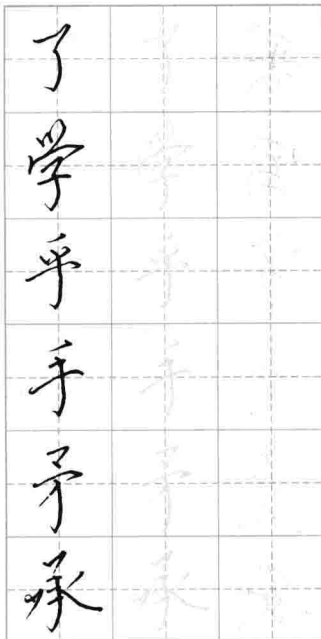 了
學
乎
手
矛
承